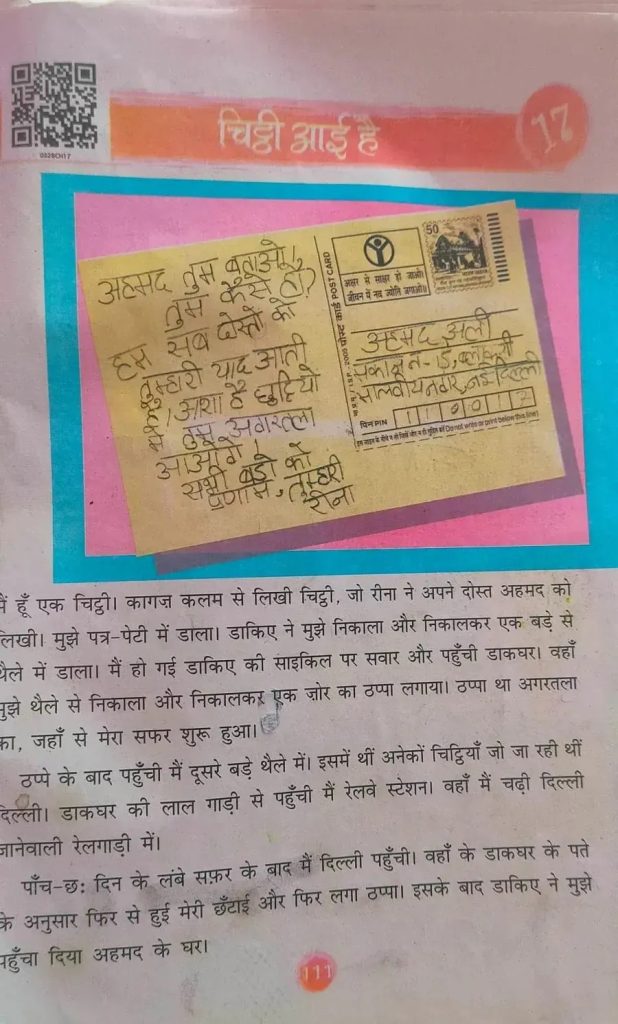 0328CH17
चिट्ठी आई है
17
अहमद तुम बताओ,
तुम कैसे हो?
हम सब दोस्तों को
तुम्हारी याद आती
है। आशा है छुट्टियों
में तुम अगरतला
आओगे।
सभी बड़ों को
प्रणाम, तुम्हारी
रीना
पोस्ट कार्ड POST CARD
अक्षर से साक्षर हो जाओ।
जीवन में नव ज्योति जगाओ॥
50
अहमद अली
मकान न-15, ब्लॉक-सी
मालवीयनगर, नई दिल्ली
पिन PIN 110017
इस लाइन के नीचे न तो लिखें और न ही मुद्रित करें Do not write or print below this line
मैं हूँ एक चिट्ठी। कागज़ कलम से लिखी चिट्ठी, जो रीना ने अपने दोस्त अहमद को
लिखी। मुझे पत्र-पेटी में डाला। डाकिए ने मुझे निकाला और निकालकर एक बड़े से
थैले में डाला। मैं हो गई डाकिए की साइकिल पर सवार और पहुँची डाकघर। वहाँ
मुझे थैले से निकाला और निकालकर एक जोर का ठप्पा लगाया। ठप्पा था अगरतला
का, जहाँ से मेरा सफर शुरू हुआ।
ठप्पे के बाद पहुँची मैं दूसरे बड़े थैले में। इसमें थीं अनेकों चिट्ठियाँ जो जा रही थीं
दिल्ली। डाकघर की लाल गाड़ी से पहुँची मैं रेलवे स्टेशन। वहाँ मैं चढ़ी दिल्ली
जानेवाली रेलगाड़ी में।
पाँच-छः दिन के लंबे सफ़र के बाद मैं दिल्ली पहुँची। वहाँ के डाकघर के पते
के अनुसार फिर से हुई मेरी छँटाई और फिर लगा ठप्पा। इसके बाद डाकिए ने मुझे
पहुँचा दिया अहमद के घर।
111